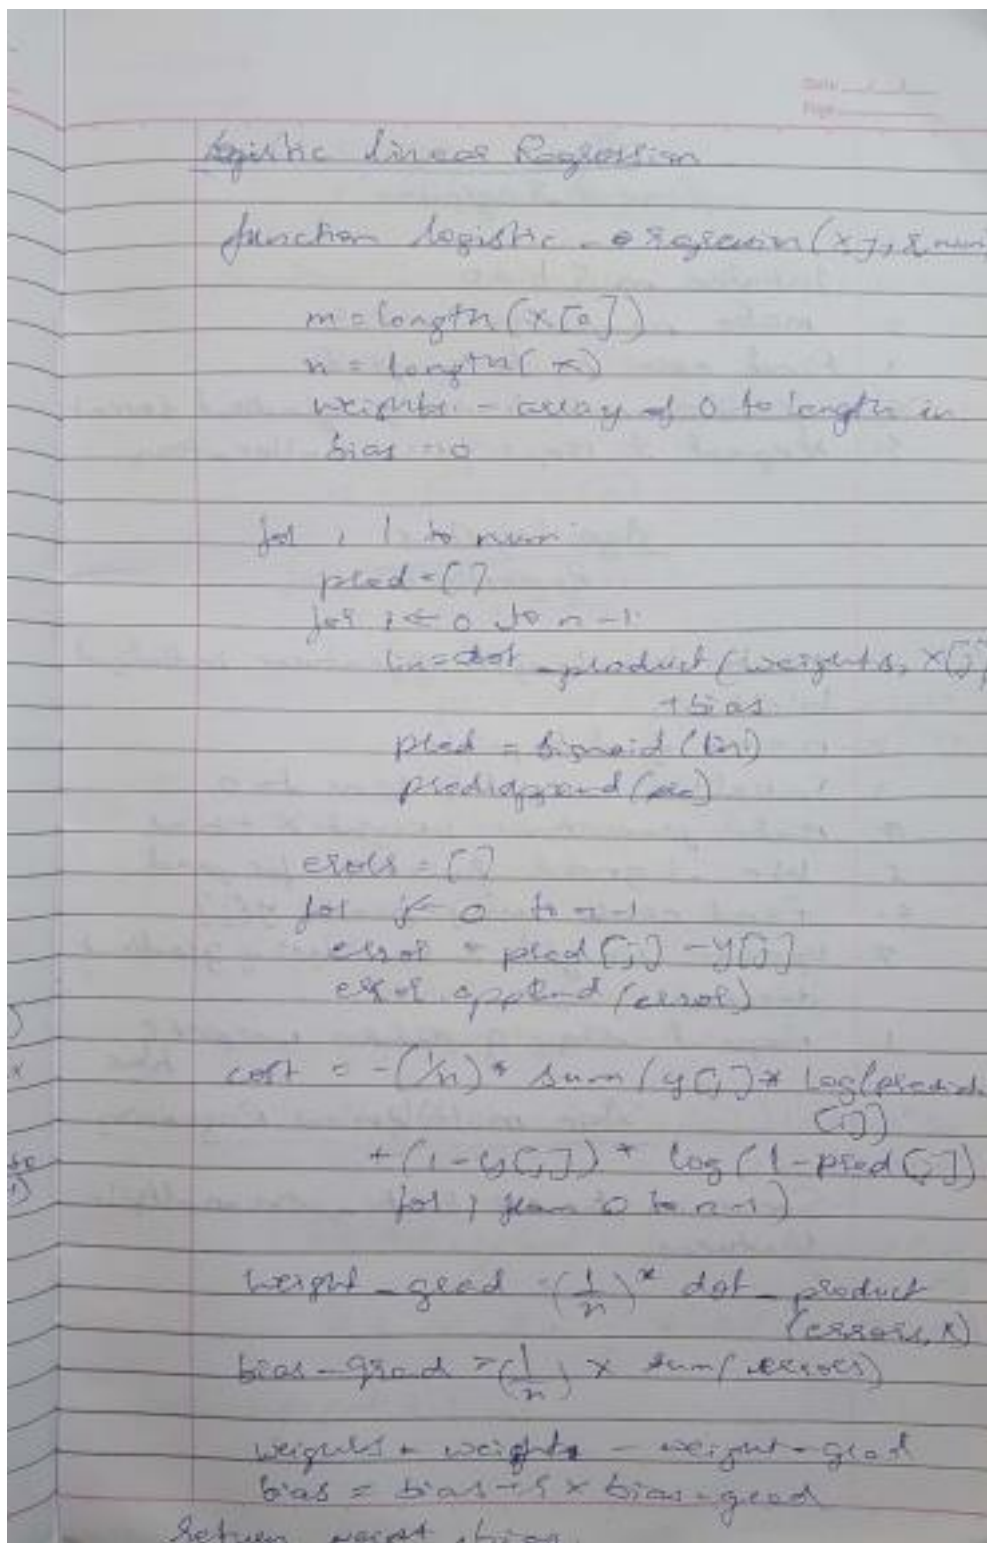 Date
Page
Logistic linear Regression
function logistic - regression (x, y, r, num)
m = length (x[0])
n = length (x)
weights - array of 0 to length in
bias = 0
for i 1 to num
pred = []
for i ← 0 to n-1
lin = dot_product (weights, x[j]
+ bias
pred = sigmoid (lin)
append
errors = []
for j ← 0 to n-1
error = pred [j] - y[j]
error. append (error)
cost = - (1/n) * sum (y[j] * log(
[j])
+ (1-y[j]) * log (1-pred [j])
for j from 0 to n-1)
weight - grad = (1/n) * dot_product
(errors, x)
bias - grad = (1/n) × sum (errors)
weights = weights - weight - grad
bias = bias × bias - grad
return bias